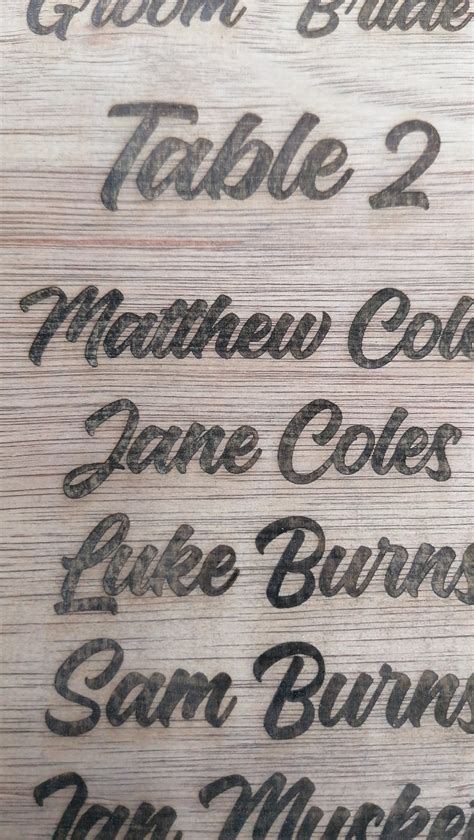 Groom Bride
Table 2
Matthew Cole
Jane Coles
Luke Burns
Sam Burns
Ian Muske